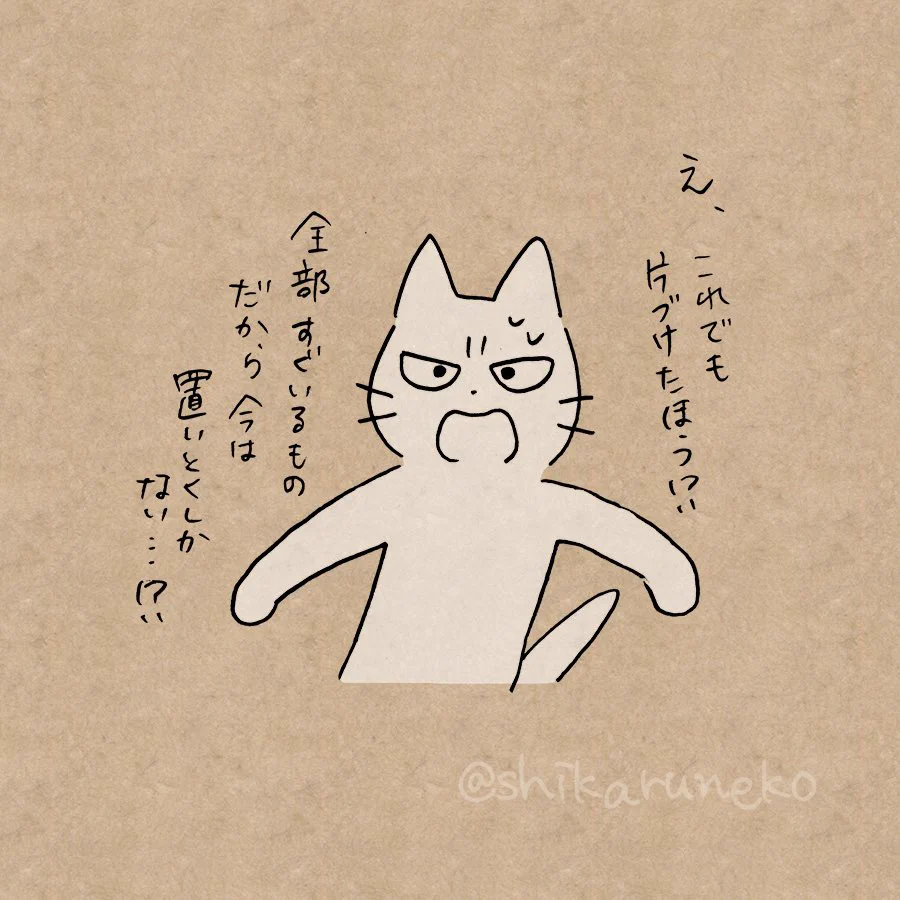 え、
これでも
片づけたほう!?
全部すぐいるもの
だから今は
置いとくしか
ない…!?
@shikaruneko